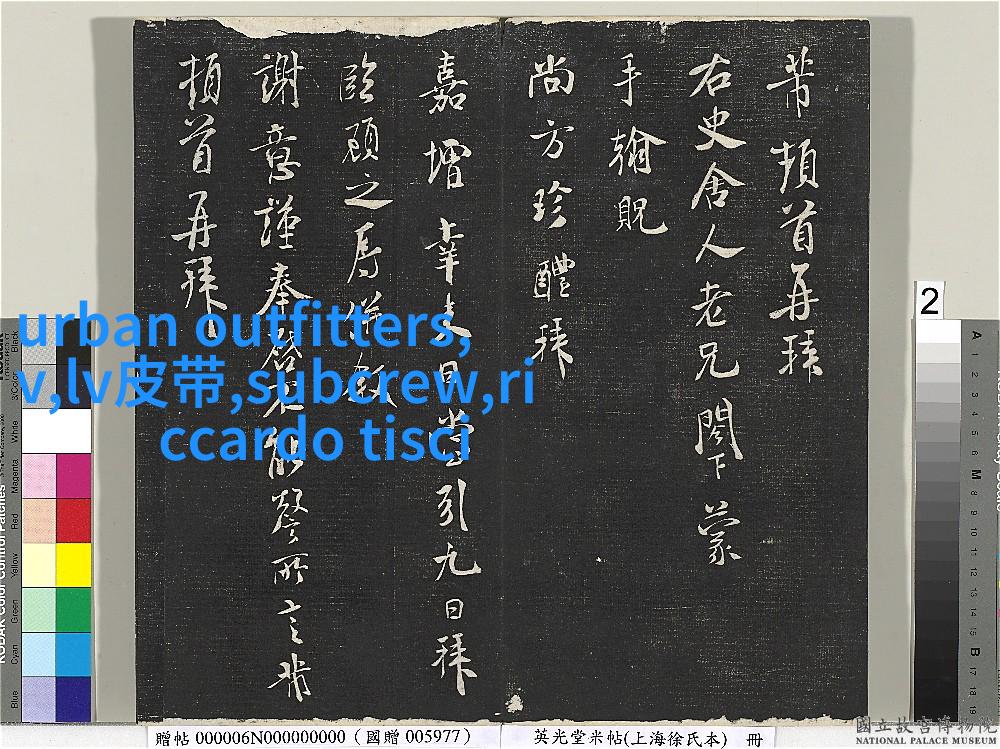 芾頓首再拜
右史舍人老兄閣下蒙
手翰貺
尚方珍醴拜
嘉增幸吏日當引九日拜
臨顧之辱併敘
謝意謹奉啓不能盡所言芾
頓首再拜
urban outfitters,
v,lv皮带,subcrew,ri
ccardo tisci
2
Black
3/Color
White
Magenta
Red
Yellow
Green
Cyan
Blue
KODAK Color Control Patches
A 1 2 3 4 5 6 M 8 9 10 11 12 13 14 15 B 17 18 19
贈帖 000006N000000000 (國贈 005977)
英光堂米帖(上海徐氏本) 冊
國立故宮博物院
NATIONAL PALACE MUSEUM